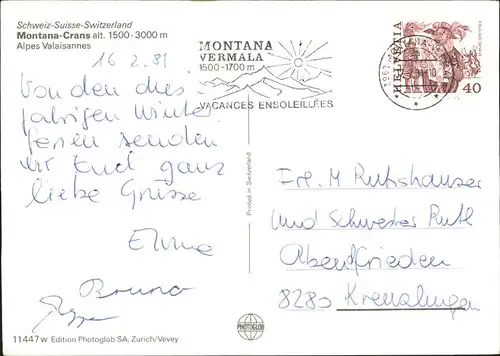 Schweiz-Suisse-Switzerland
Montana-Crans alt. 1500-3000 m
Alpes Valaisannes
16 2. 81
Von den dies
jährigen Winter
ferien senden
wir Euch ganz
liebe Grüsse
Bruno
11447 w Edition Photoglob SA, Zurich/Vevey
MONTANA
VERMALA
1500-1700 m
VACANCES ENSOLEILLÉES
HELVETIA
40
Printed in Switzerland
PHOTOGLOB
Frl. M Rutishauser
und Schwester Ruth
Abendfrieden
8280 Kreuzlingen